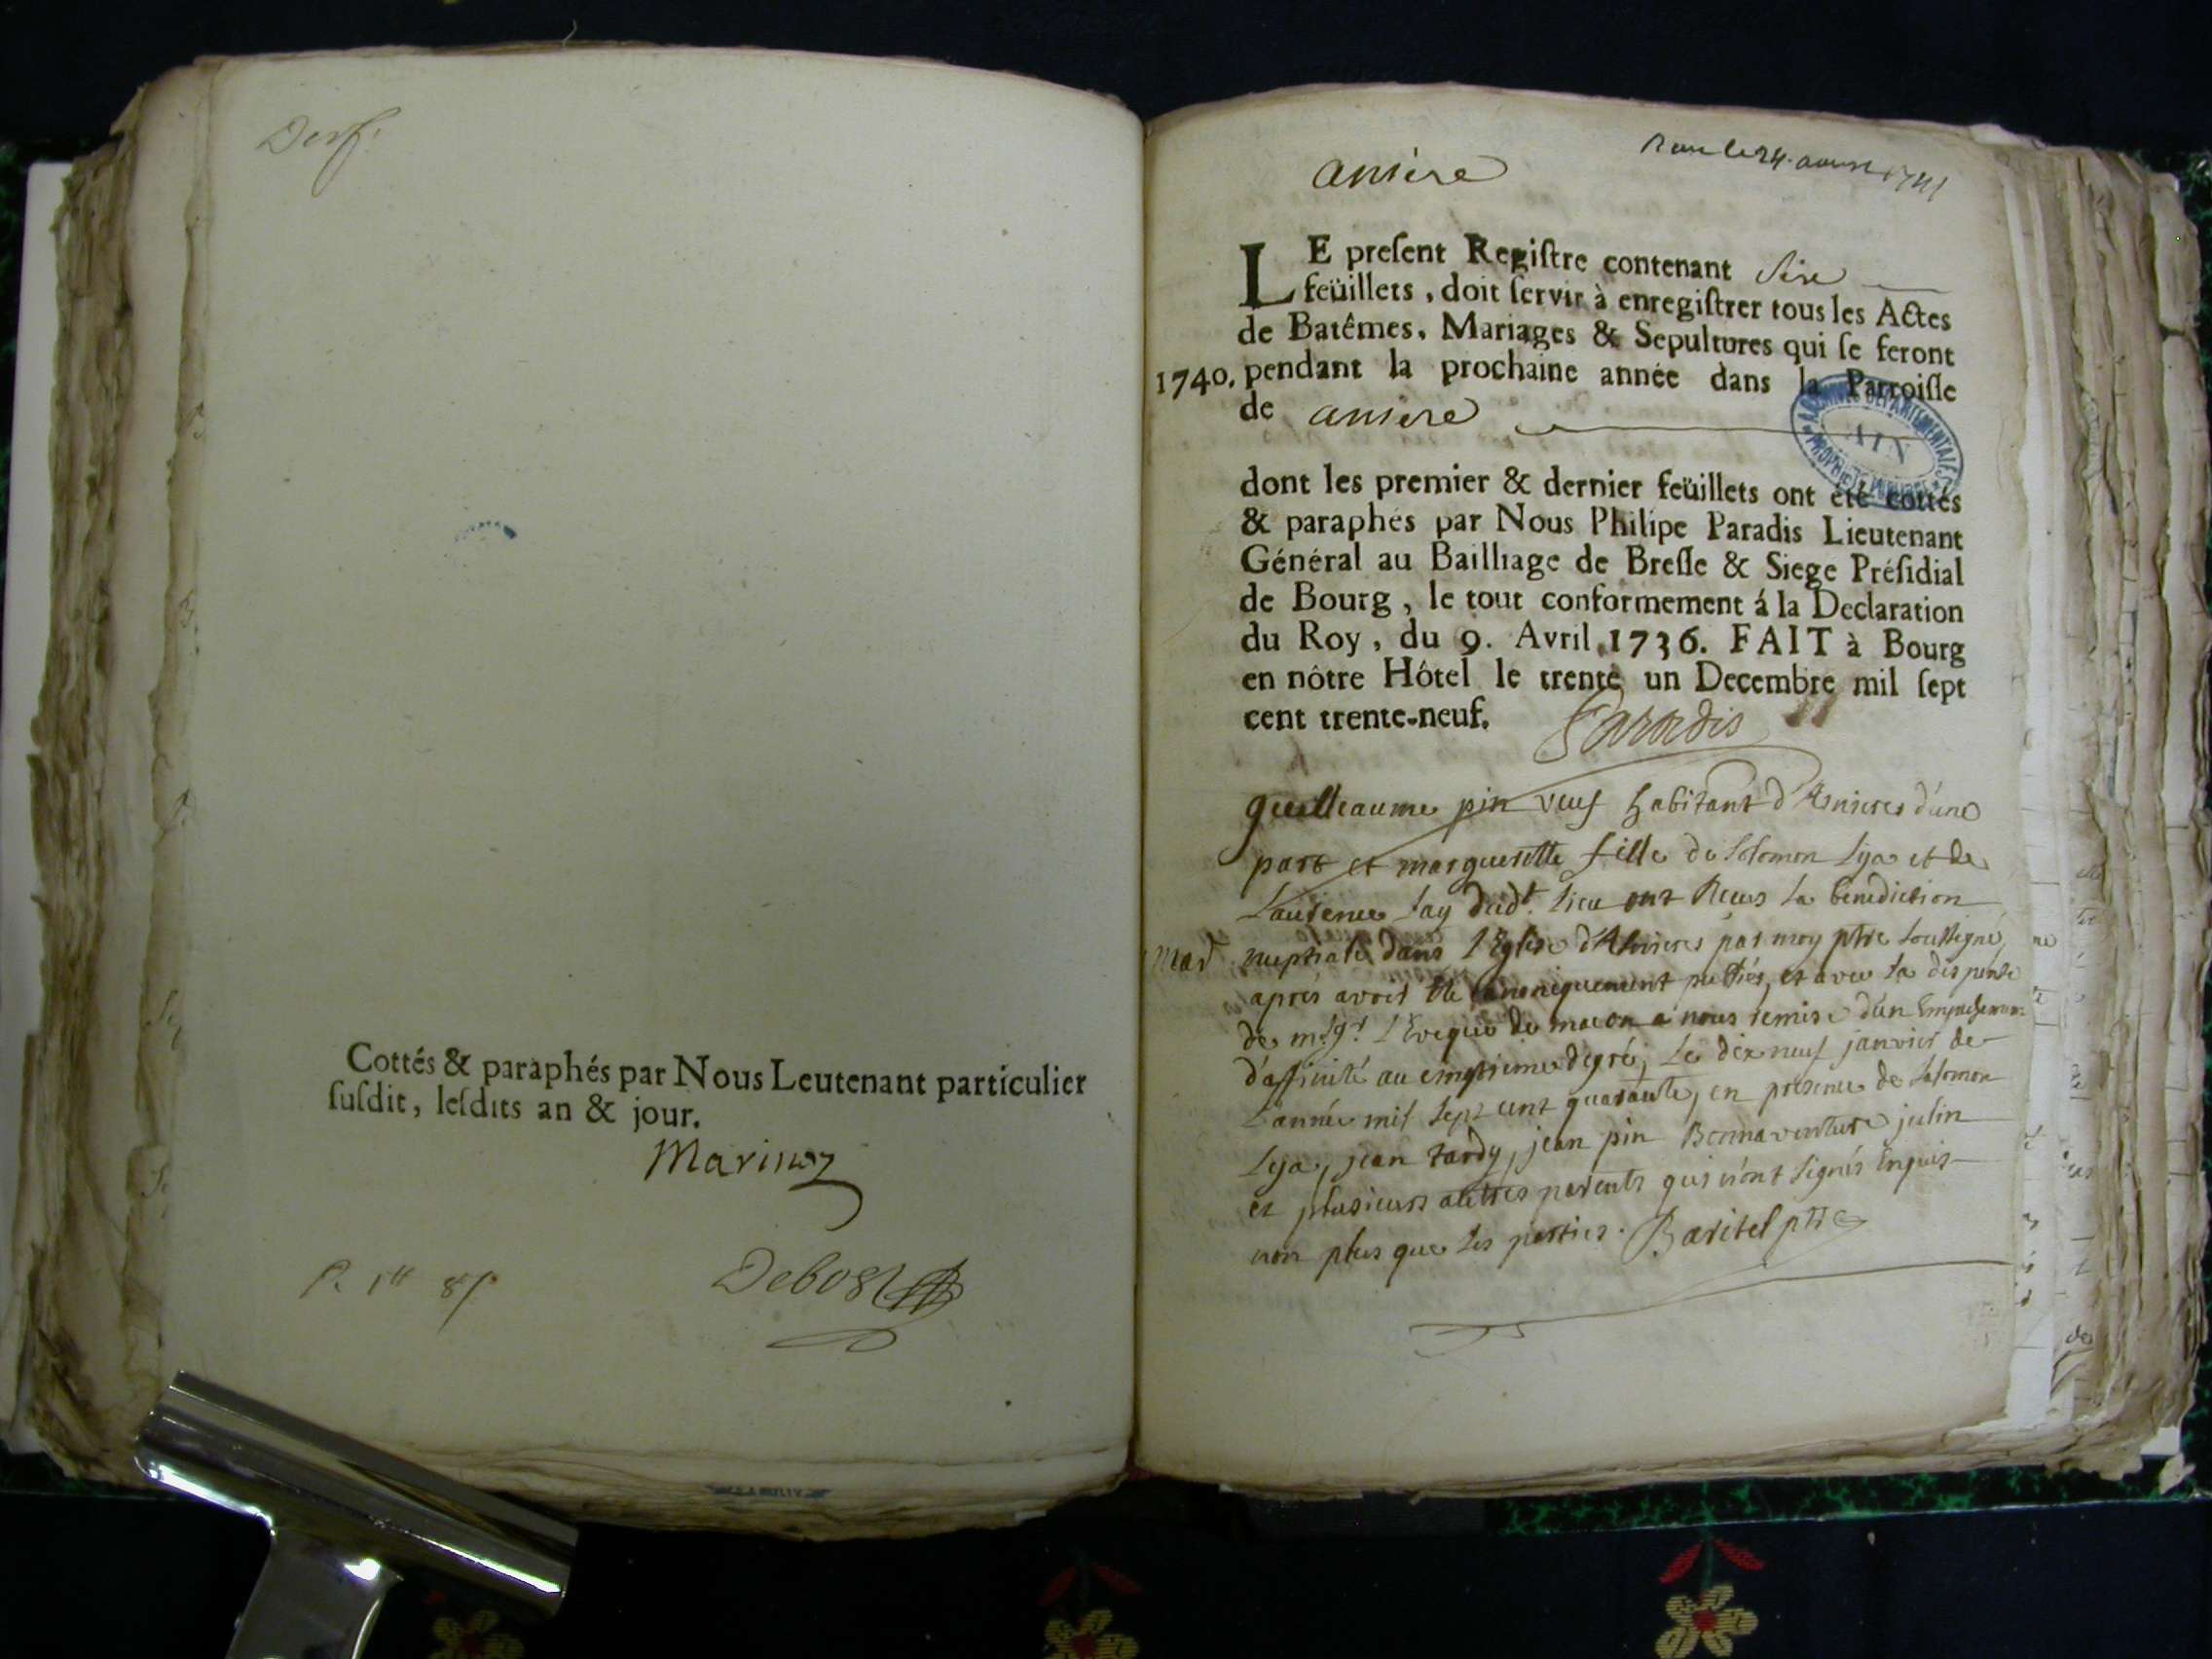 Cottés & paraphés par Nous Leutenant particulier
ſuſdit, leſdits an & jour.
Marinoz
Debost
aniere
LE preſent Regiſtre contenant Sixe
feüillets, doit ſervir à enregiſtrer tous les Actes
de Batêmes, Mariages & Sepultures qui ſe feront
1740. pendant la prochaine année dans la Parroiſſe
de aniere
ARCHIVES DEPARTEMENTALES
AIN
dont les premier & dernier feüillets ont été cottés
& paraphés par Nous Philipe Paradis Lieutenant
Général au Bailliage de Breſſe & Siege Préſidial
de Bourg, le tout conformement á la Declaration
du Roy, du 9. Avril 1736. FAIT à Bourg
en nôtre Hôtel le trente un Decembre mil ſept
cent trente-neuf.
Paradis
guilleaume pin veuf habitant d'Asnieres d'une
part et margueritte fille de Solomon Lya et de
Laurence Lay dud.t lieu ont Recus la benediction
mar nuptiale dans l'Eglise d'Asnieres par moy ptre soussigné
aprés avoir été canoniquement publiés, et avec la dispense
de m.sgr L'Eveque de macon a nous remise d'un Empechemen
d'affinité au degré, Le dix neuf janvier de
L'année mil sept cent quarante, en presence de Salomon
Lya, jean tardy, jean pin Bonnaventure julin
et plusieurs autres parents qui n'ont signés Enquis
non plus que les parties. Baritel ptre